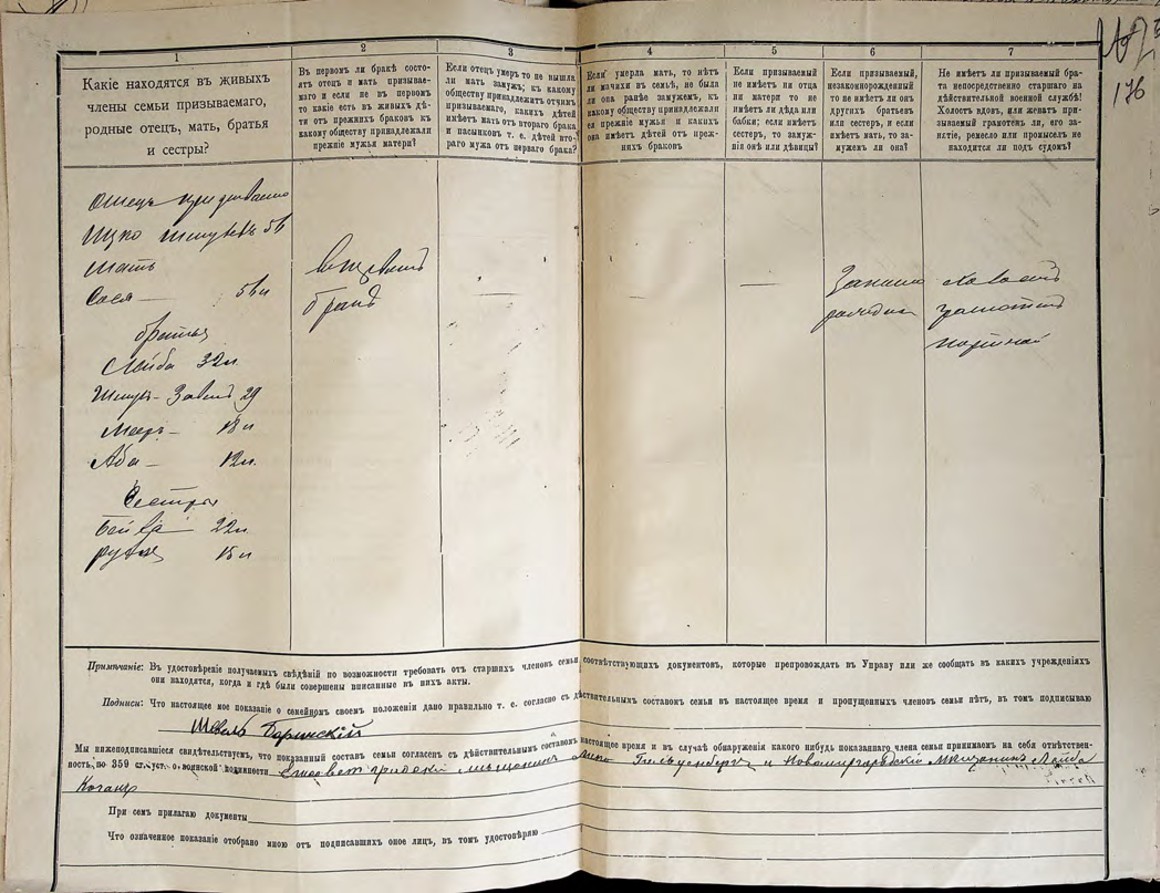 176
1
2
3
4
5
6
7
Какіе находятся въ живыхъ
члены семьи призываемаго,
родные отецъ, мать, братья
и сестры?
Въ первомъ ли бракѣ состо-
ятъ отецъ и мать призывае-
маго и если не въ первомъ
то какіе есть въ живыхъ дѣ-
ти отъ прежнихъ браковъ къ
какому обществу принадлежали
прежніе мужья матери?
Если отецъ умеръ то не вышла
ли мать замужъ; къ какому
обществу принадлежитъ отчимъ
призываемаго, какихъ дѣтей
имѣетъ мать отъ втораго брака
и пасынковъ т. е. дѣтей вто-
раго мужа отъ перваго брака?
Если умерла мать, то нѣтъ
ли мачихи въ семьѣ, не была
ли она ранѣе замужемъ, къ
какому обществу принадлежали
ея прежніе мужья и какихъ
она имѣетъ дѣтей отъ преж-
нихъ браковъ
Если призываемый
не имѣетъ ни отца
ни матери то не
имѣетъ ли дѣда или
бабки; если имѣетъ
сестеръ, то замуж-
нія онѣ или дѣвицы?
Если призываемый,
незаконнорожденный
то не имѣетъ ли онъ
другихъ братьевъ
или сестеръ, и если
имѣетъ мать, то за-
мужемъ ли она?
Не имѣетъ ли призываемый бра-
та непосредственно старшаго на
дѣйствительной военной службѣ!
Холостъ вдовъ, или женатъ при-
зываемый грамотенъ ли, его за-
нятіе, ремесло или промыселъ не
находится ли подъ судомъ?
Отецъ
Ицко
Мать
Сося —
братья
Лейба 32 л.
Мееръ — 18 л
Аба — 12 л.
Сестры
22 л.
15 л
бракѣ
—
—
—
холостъ
грамотенъ
портной
Примѣчаніе: Въ удостовѣреніе получаемыхъ свѣдѣній по возможности требовать отъ старшихъ членовъ семьи соотвѣтствующихъ документовъ, которые препровождать въ Управу или же сообщать въ какихъ учрежденіяхъ
они находятся, когда и гдѣ были совершены вписанные въ нихъ акты.
Подписи: Что настоящее мое показаніе о семейномъ своемъ положеніи дано правильно т. е. согласно съ дѣйствительнымъ составомъ семьи въ настоящее время и пропущенныхъ членовъ семьи нѣтъ, въ томъ подписываю
Шевель Боринскій
Мы нижеподписавшіеся свидѣтельствуемъ, что показанный составъ семьи согласенъ съ дѣйствительнымъ составомъ настоящее время и въ случаѣ обнаруженія какого нибудь показаннаго члена семьи принимаемъ на себя отвѣтствен-
ность, по 359 ст. уст. о воинской повинности Елисаветградскій мѣщанинъ и Новомиргородскій Мѣщанинъ Лейба
Коганъ
При семъ прилагаю документы
Что означенное показаніе отобрано мною отъ подписавшихъ оное лицъ, въ томъ удостовѣряю